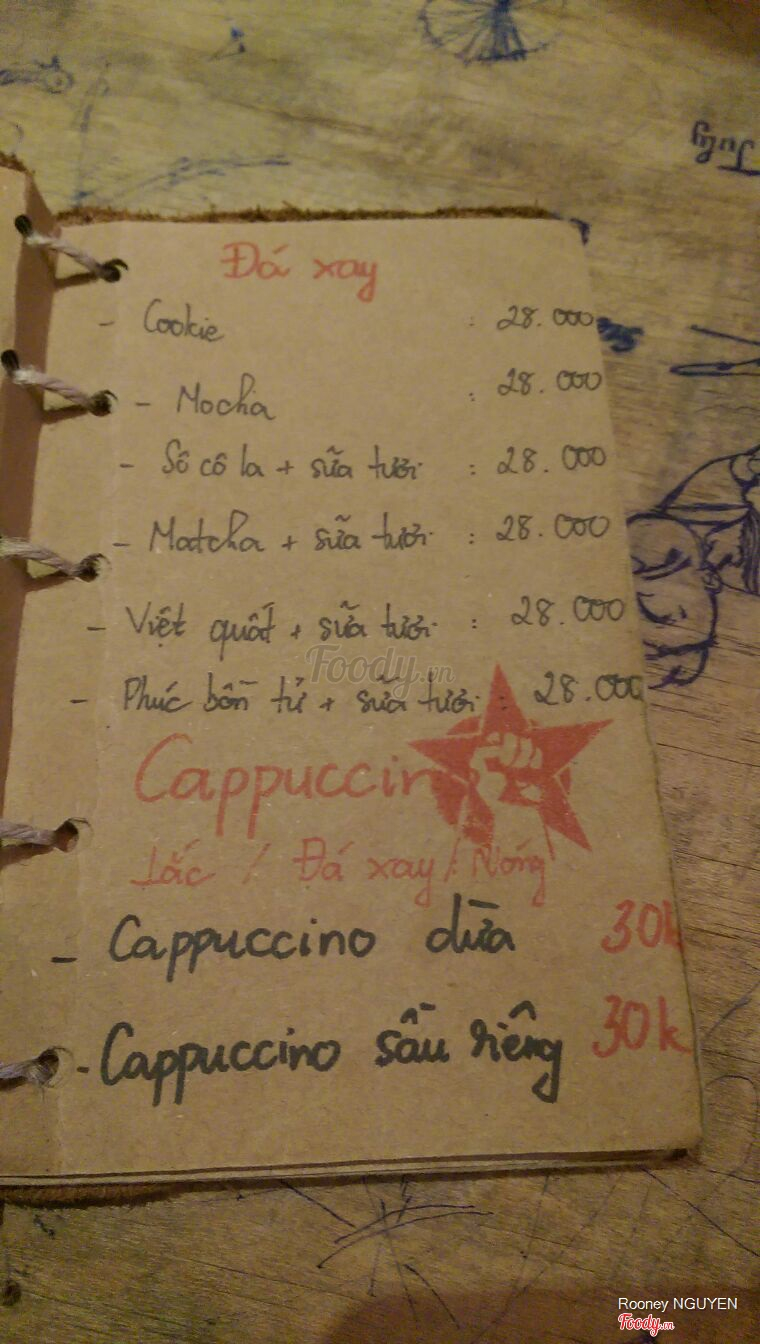 July
Đá xay
- Cookie : 28.000
- Mocha : 28.000
- Sô cô la + sữa tươi : 28.000
- Matcha + sữa tươi : 28.000
- Việt quất + sữa tươi : 28.000
Foody.vn
- Phúc bồn tử + sữa tươi : 28.000
Cappuccin
Lắc / Đá xay / Nóng
- Cappuccino dừa 30k
- Cappuccino sầu riêng 30k
Rooney NGUYEN
Foody.vn